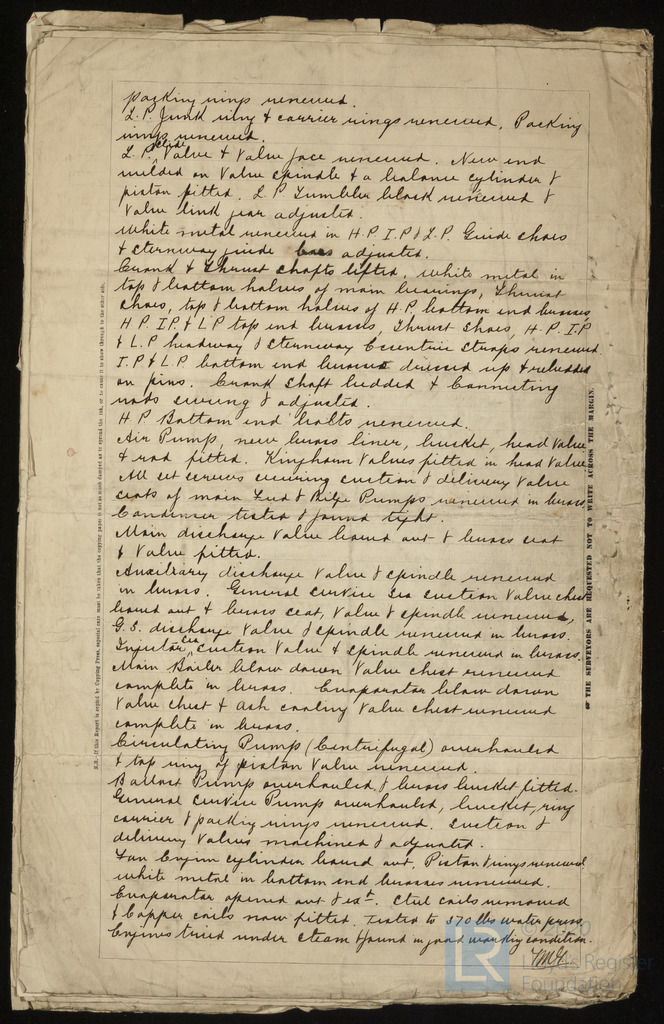 packing rings renewed.
L.P. Junk ring & carrier rings renewed. Packing
rings renewed.
L.P. Slide Valve & Valve face renewed. New end
welded on Valve spindle & a balance cylinder &
piston fitted. L.P. Tumbler block renewed &
Valve link gear adjusted.
White metal renewed in H.P. I.P & L.P. Guide shoes
& sternway guide adjusted.
Crank & Thrust shafts lifted, white metal in
top & bottom halves of main bearings, Thrust
shoes, top & bottom halves of H.P. bottom end brasses,
H.P. I.P. & L P top end brasses, Thrust shoes, H.P. I.P
& L.P headway & sternway Eccentric straps renewed.
I.P & L.P. bottom end brasses dressed up & rebedded
on pins. Crank shaft bedded & Connecting
rods swung & adjusted.
H.P Bottom end bolts renewed.
Air Pump, new brass liner, bucket, head Valve
& rod fitted. Kinghorn Valves fitted in head Valve
All set screws securing suction & delivery Valve
seats of main Feed & Bilge Pumps renewed in brass.
Condenser tested & found tight.
Main discharge Valve bored out & brass seat
& Valve fitted.
Auxiliary discharge Valve & spindle renewed
in brass. General service Sea suction Valve chest
bored out & brass seat, Valve & spindle renewed,
G.S. discharge Valve & spindle renewed in brass.
Injector Sea suction Valve & spindle renewed in brass.
Main Boiler blow down Valve chest renewed
complete in brass. Evaporator blow down
Valve chest & Ash cooling Valve chest renewed
complete in brass.
Circulating Pump (Centrifugal) overhauled
& top ring of piston Valve renewed.
Ballast Pump overhauled, & brass bucket fitted.
General Service Pump overhauled, bucket, ring
carrier & packing rings renewed. Suction &
delivery Valves machined & adjusted.
Fan Engine cylinder bored out. Piston & rings renewed
white metal in bottom end brasses renewed.
Evaporator opened out & exd. Steel coils removed
& Copper coils now fitted. Tested to 370 lbs water press.
Engines tried under steam & found in good working condition.
N.B.—If this Report is copied by Copying Press, especial care must be taken that the copying paper is not so much damped as to spread the ink, or to cause it to show through to the other side.
THE SURVEYORS ARE REQUESTED NOT TO WRITE ACROSS THE MARGIN.
© 2020
LR
Lloyd's Register
Foundation